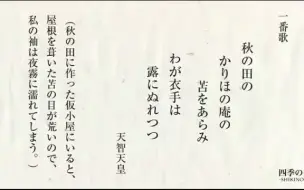 一番歌
秋の田の
かりほの庵の
苫をあらみ
わが衣手は
露にぬれつつ
天智天皇
(秋の田に作った仮小屋にいると、
屋根を葺いた苫の目が荒いので、
私の袖は夜露に濡れてしまう。)
四季の
SHIKINO